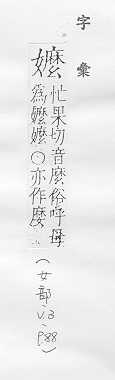 字彙
嬤
忙果切音麼俗呼母
為嬤嬤○亦作麼
(女部、V.3、P88)